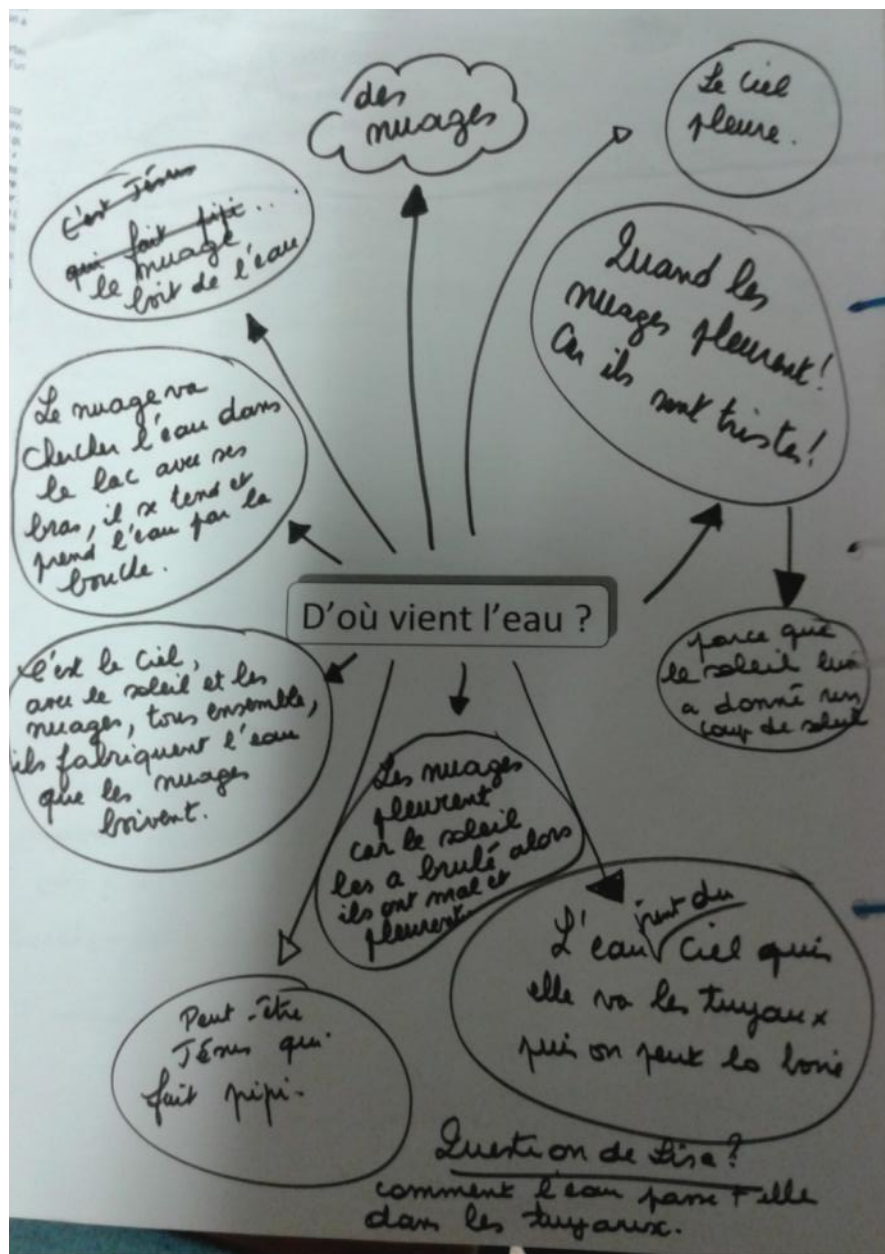 des
nuages
Le Ciel
pleure.
C'est Jésus
qui fait pipi...
le nuage
boit de l'eau
Quand les
nuages pleurent!
Car ils
sont tristes!
Le nuage va
chercher l'eau dans
le lac avec ses
bras, il se tend et
prend l'eau par la
bouche.
D'où vient l'eau ?
parce que
le soleil lui
a donné un
coup de soleil
C'est le Ciel,
avec le soleil et les
nuages, tous ensemble,
ils fabriquent l'eau
que les nuages
boivent.
Les nuages
pleurent
car le soleil
les a brulé alors
ils ont mal et
pleurent.
L'eau vient du Ciel puis
elle va les tuyaux
puis on peut la boire
Peut-être
Jésus qui
fait pipi.
Question de Lisa?
comment l'eau passe t elle
dans les tuyaux.